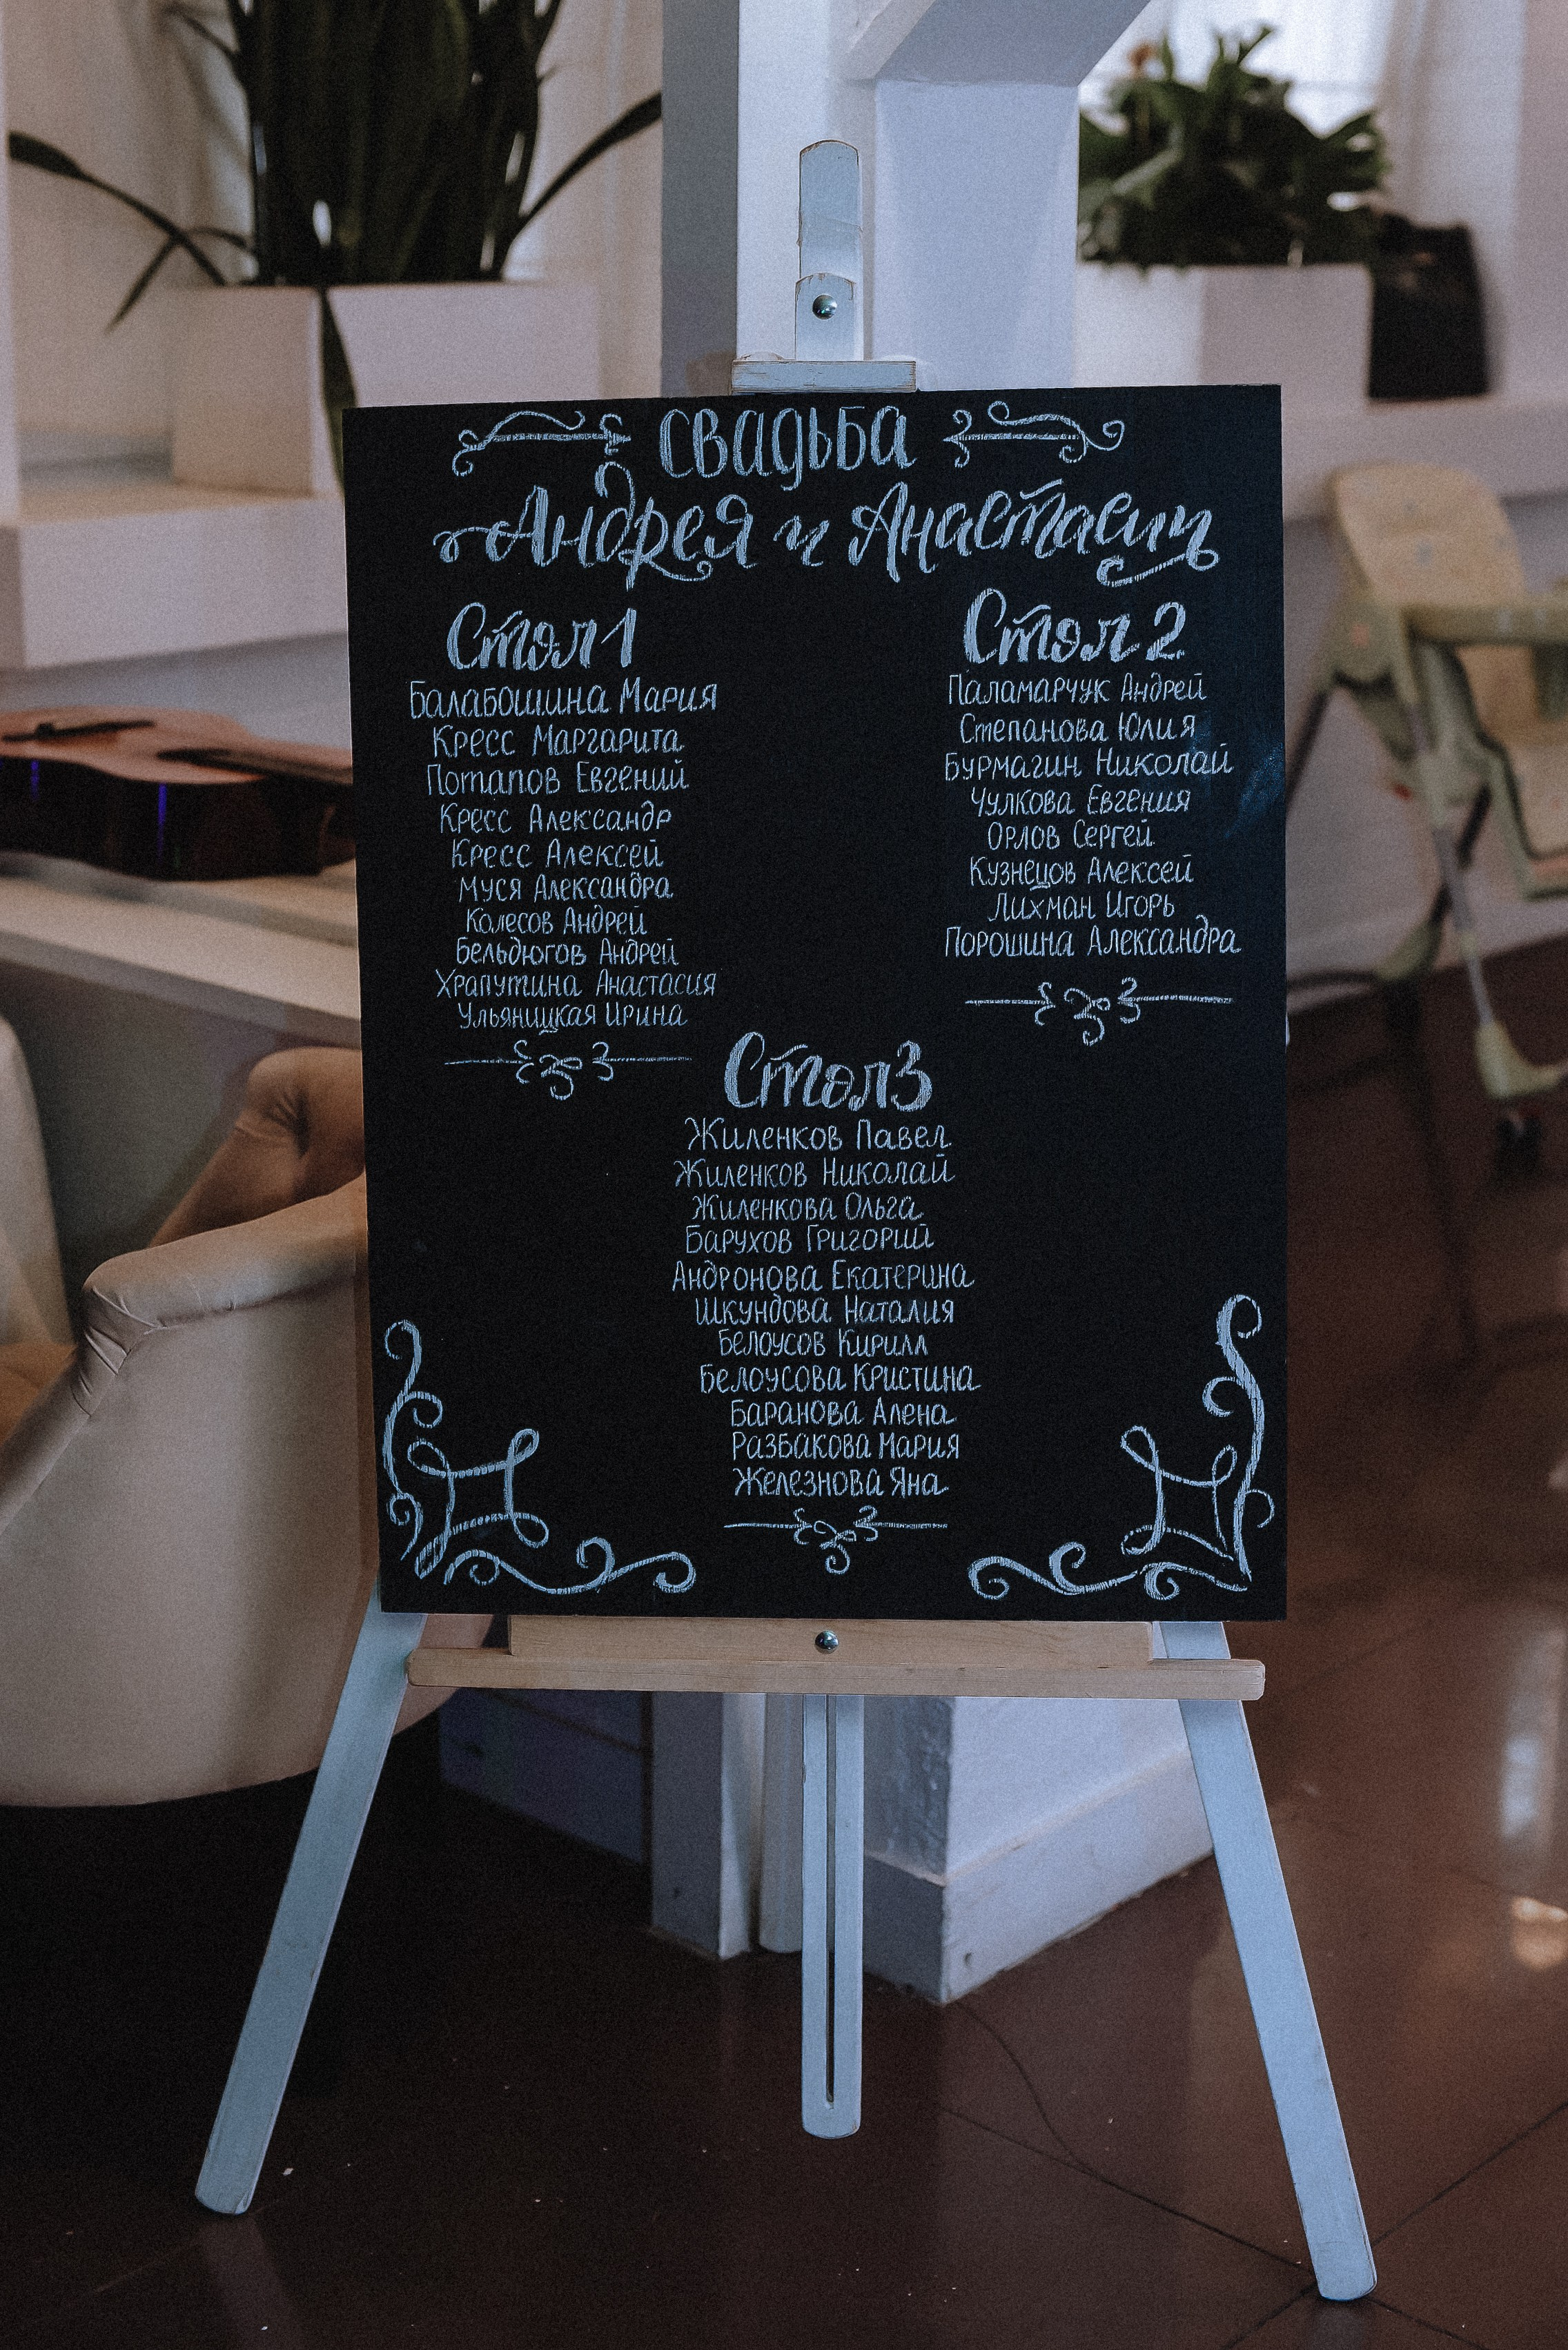 Свадьба
Андрея и Анастасии
Стол 1
Балабошина Мария
Кресс Маргарита
Потапов Евгений
Кресс Александр
Кресс Алексей
Муся Александра
Колесов Андрей
Бельдюгов Андрей
Храпутина Анастасия
Ульяницкая Ирина
Стол 2
Паламарчук Андрей
Степанова Юлия
Бурмагин Николай
Чулкова Евгения
Орлов Сергей
Кузнецов Алексей
Лихман Игорь
Порошина Александра
Стол 3
Жиленков Павел
Жиленков Николай
Жиленкова Ольга
Барухов Григорий
Андронова Екатерина
Шкундова Наталия
Белоусов Кирилл
Белоусова Кристина
Баранова Алена
Разбакова Мария
Железнова Яна